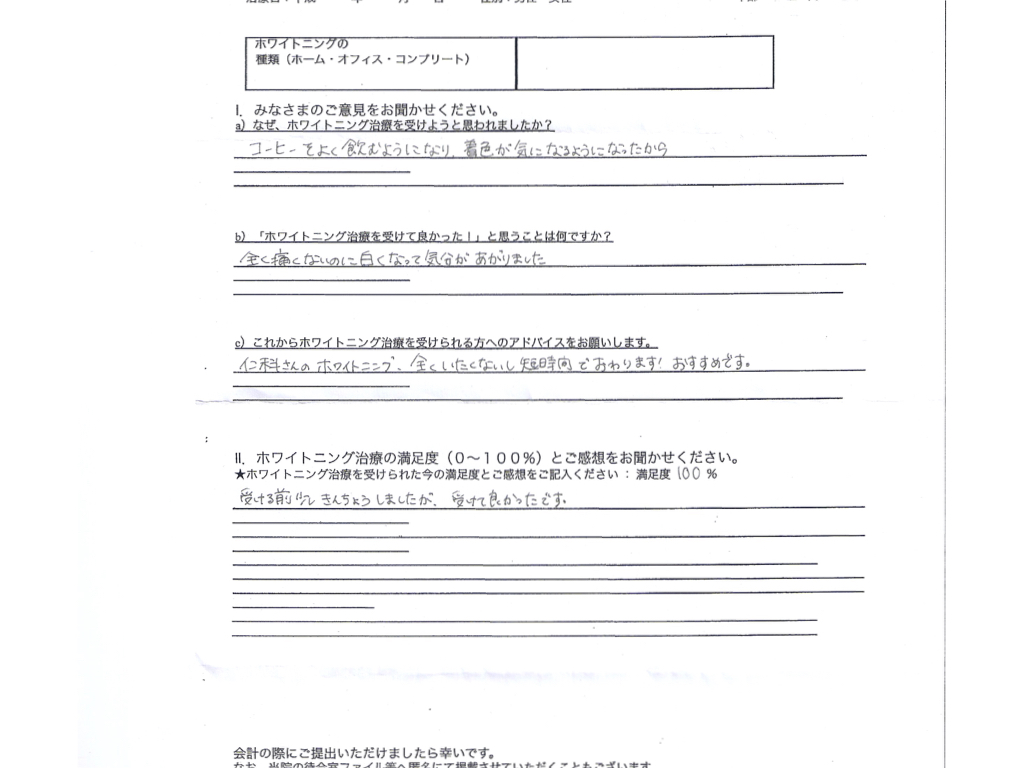 ホワイトニングの
種類（ホーム・オフィス・コンプリート）
I．みなさまのご意見をお聞かせください。
a）なぜ、ホワイトニング治療を受けようと思われましたか？
コーヒーをよく飲むようになり、着色が気になるようになったから
b）「ホワイトニング治療を受けて良かった！」と思うことは何ですか？
全く痛くないのに白くなって気分があがりました
c）これからホワイトニング治療を受けられる方へのアドバイスをお願いします。
仁科さんのホワイトニング、全くいたくないし短時間でおわります! おすすめです。
II．ホワイトニング治療の満足度（０～１００％）とご感想をお聞かせください。
★ホワイトニング治療を受けられた今の満足度とご感想をご記入ください：満足度 100 ％
受ける前少しきんちょうしましたが、受けて良かったです。
会計の際にご提出いただけましたら幸いです。
なお、当院の待合室ファイル等へ匿名にて掲載させていただくこともございます。